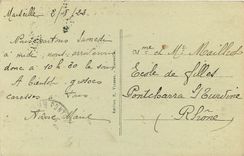 Marseille 2/8/23
Nous partons Samedi
à midi nous arriverons
donc à 10 h 30 le soir
A bientôt grosses
caresses
Marie
Me et Mr Maillet
Ecole de filles
Pontcharra s/ Turdine
Rhône